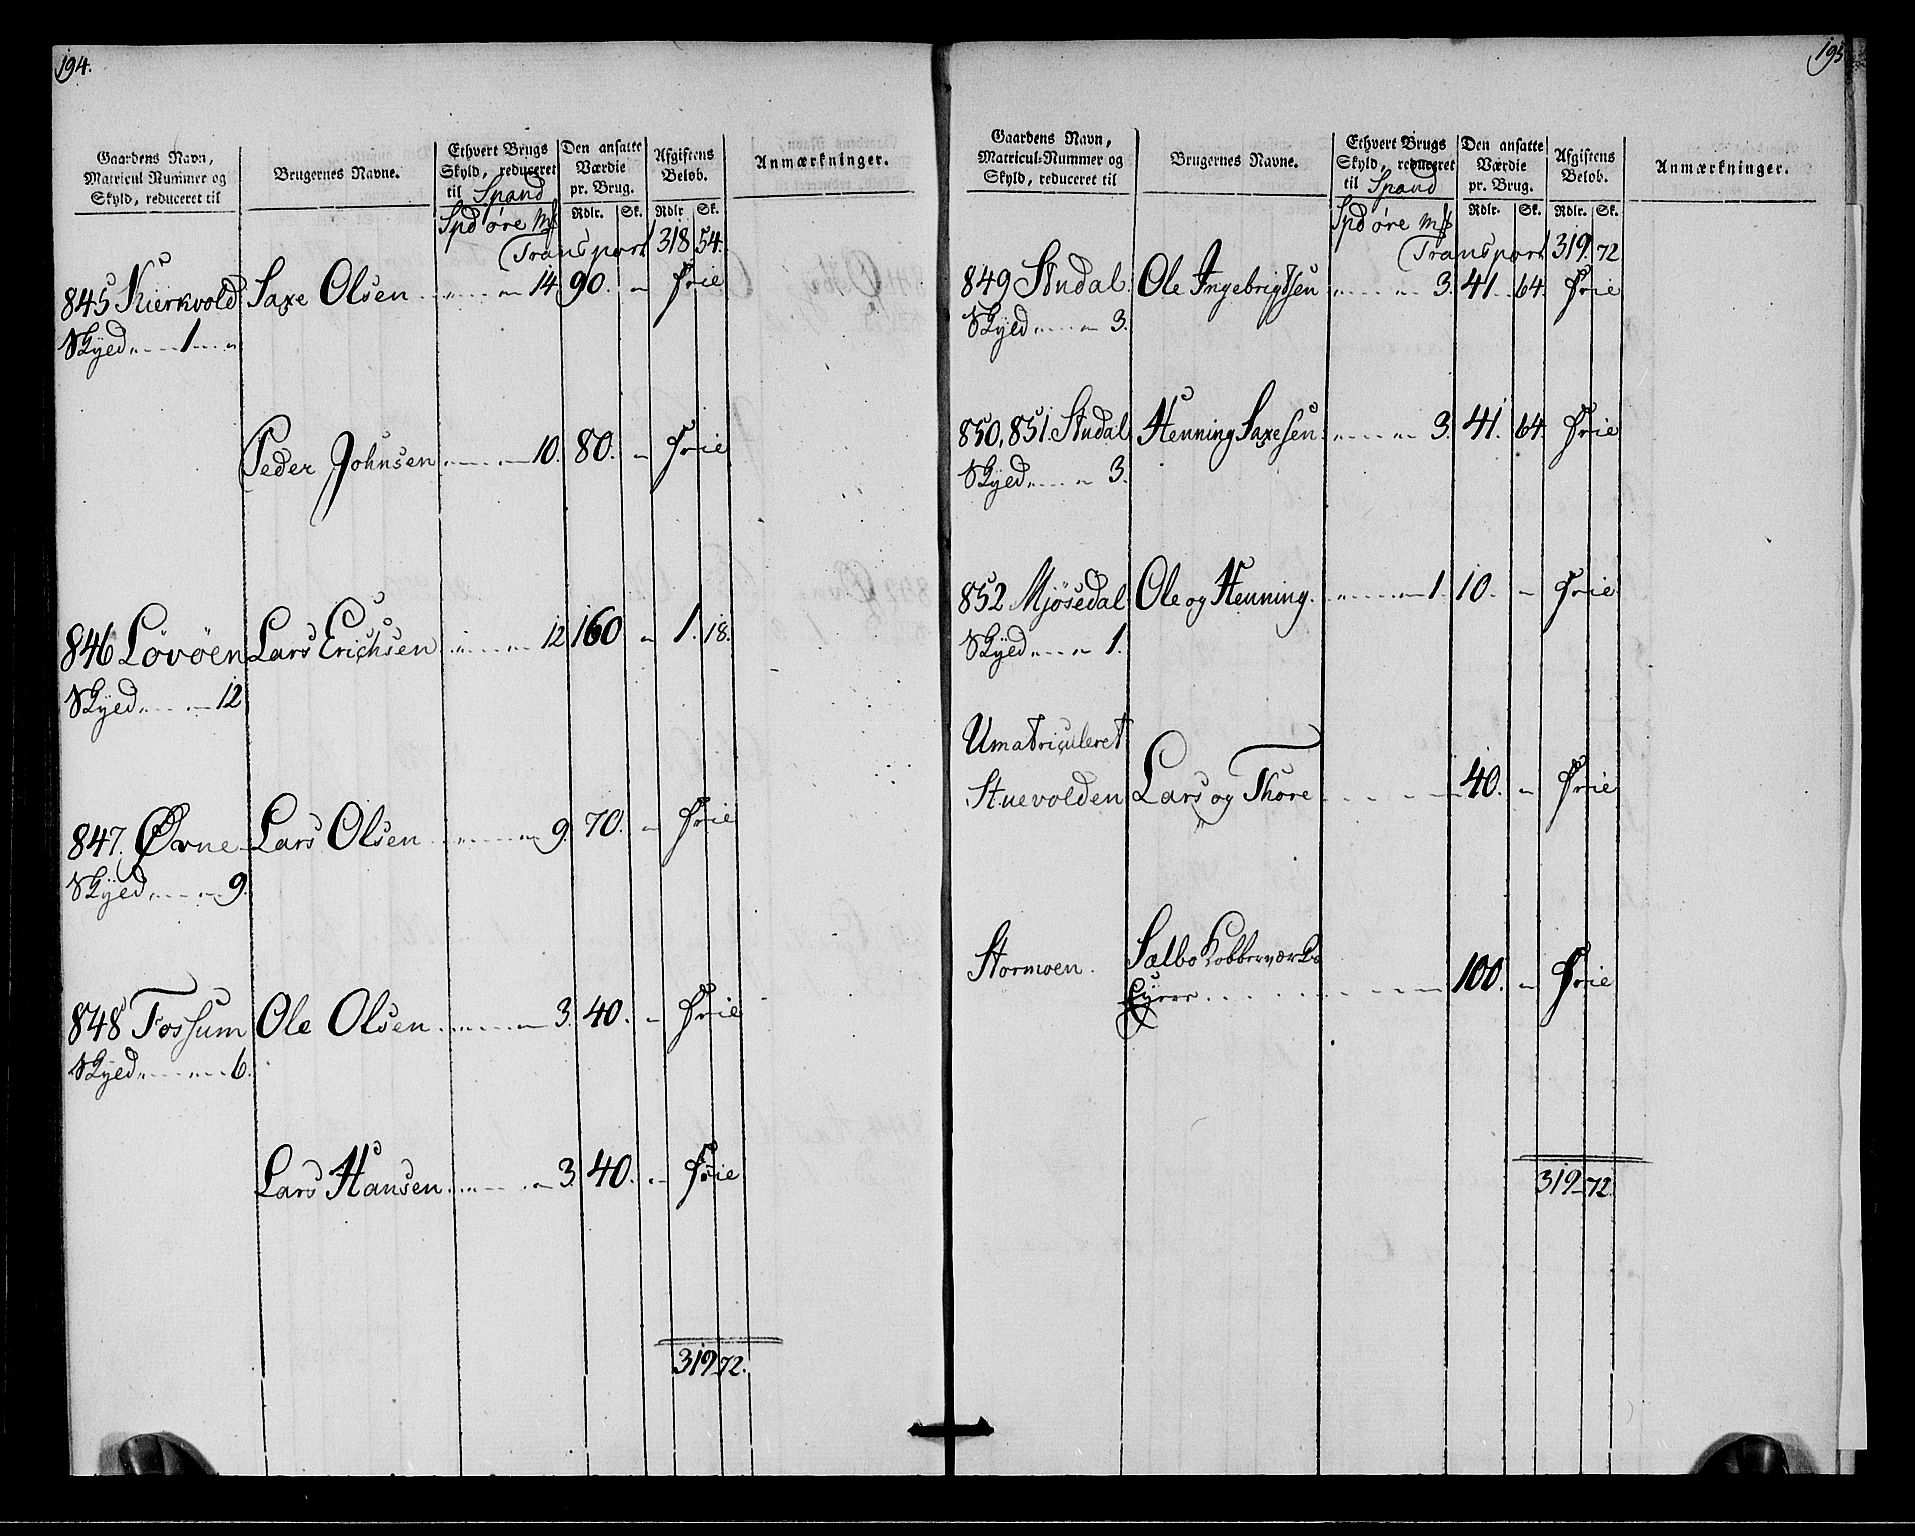 194.
Gaardens Navn, Matricul Nummer og Skyld, reduceret til
Brugernes Navne.
Ethvert Brugs Skyld, reduceret til Spand
Den ansatte Værdie pr. Brug.
Afgiftens Beløb.
Anmærkninger.
Spd øre Mk Rdlr. Sk. Rdlr Sk.
Transport 318 54.
845 Kierkvold Saxe Olsen 14 90. " Frie
Skyld 1 "
Peder Johnsen 10. 80. " Frie
846 Løvøen Lars Erichsen 12 160 " 1. 18.
Skyld 12
847. Øvne Lars Olsen 9. 70. " Frie
Skyld 9.
848 Fossum Ole Olsen 3. 40. " Frie
Skyld 6.
Lars Hansen 3. 40. " Frie
319 72.
195
Gaardens Navn, Matricul-Nummer og Skyld, reduceret til
Brugernes Navne.
Ethvert Brugs Skyld, reduceret til Spand
Den ansatte Værdie pr. Brug.
Afgiftens Beløb.
Anmærkninger.
Spd øre Mk Rdlr. Sk. Rdlr. Sk.
Transport 319. 72
849 Studal Ole Ingebrigtsen 3. 41. 64. Frie
Skyld 3.
850, 851. Studal Henning Saxesen 3. 41. 64. Frie
Skyld 3.
852 Mjøsedal Ole og Henning. 1. 10. " Frie
Skyld 1.
Umatriculeret
Stuevolden Lars og Thore 40. " Frie
Stormoen. Sælbo Kobberværks
Eyere 100. " Frie
319 72.